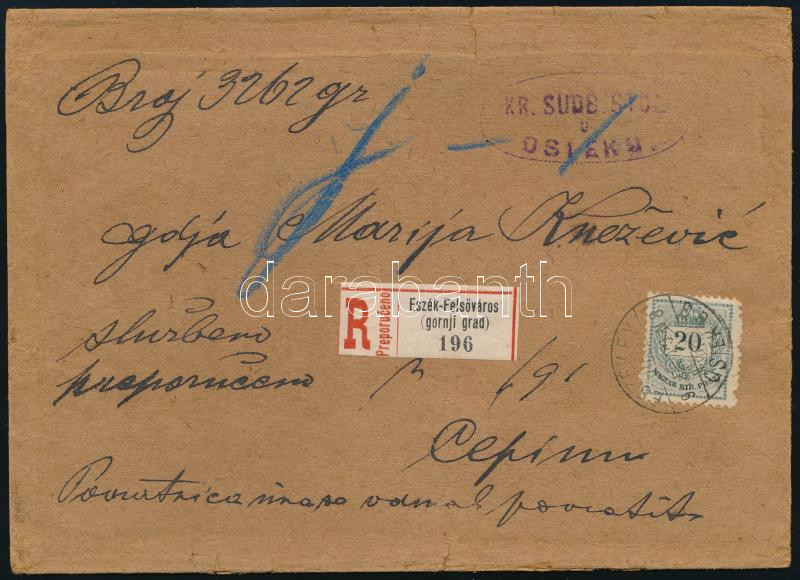 Broj 3262 gr
KR. SUDB. STOL
U
OSIEKU.
gdja Marija Knežević
darabanth
R
Preporučeno
Eszék-Felsőváros
(gornji grad)
196
službeno
preporučeno
20
MAGYAR KIR. POSTA
u
Čepinu
Povratnica ima se odmah povratiti